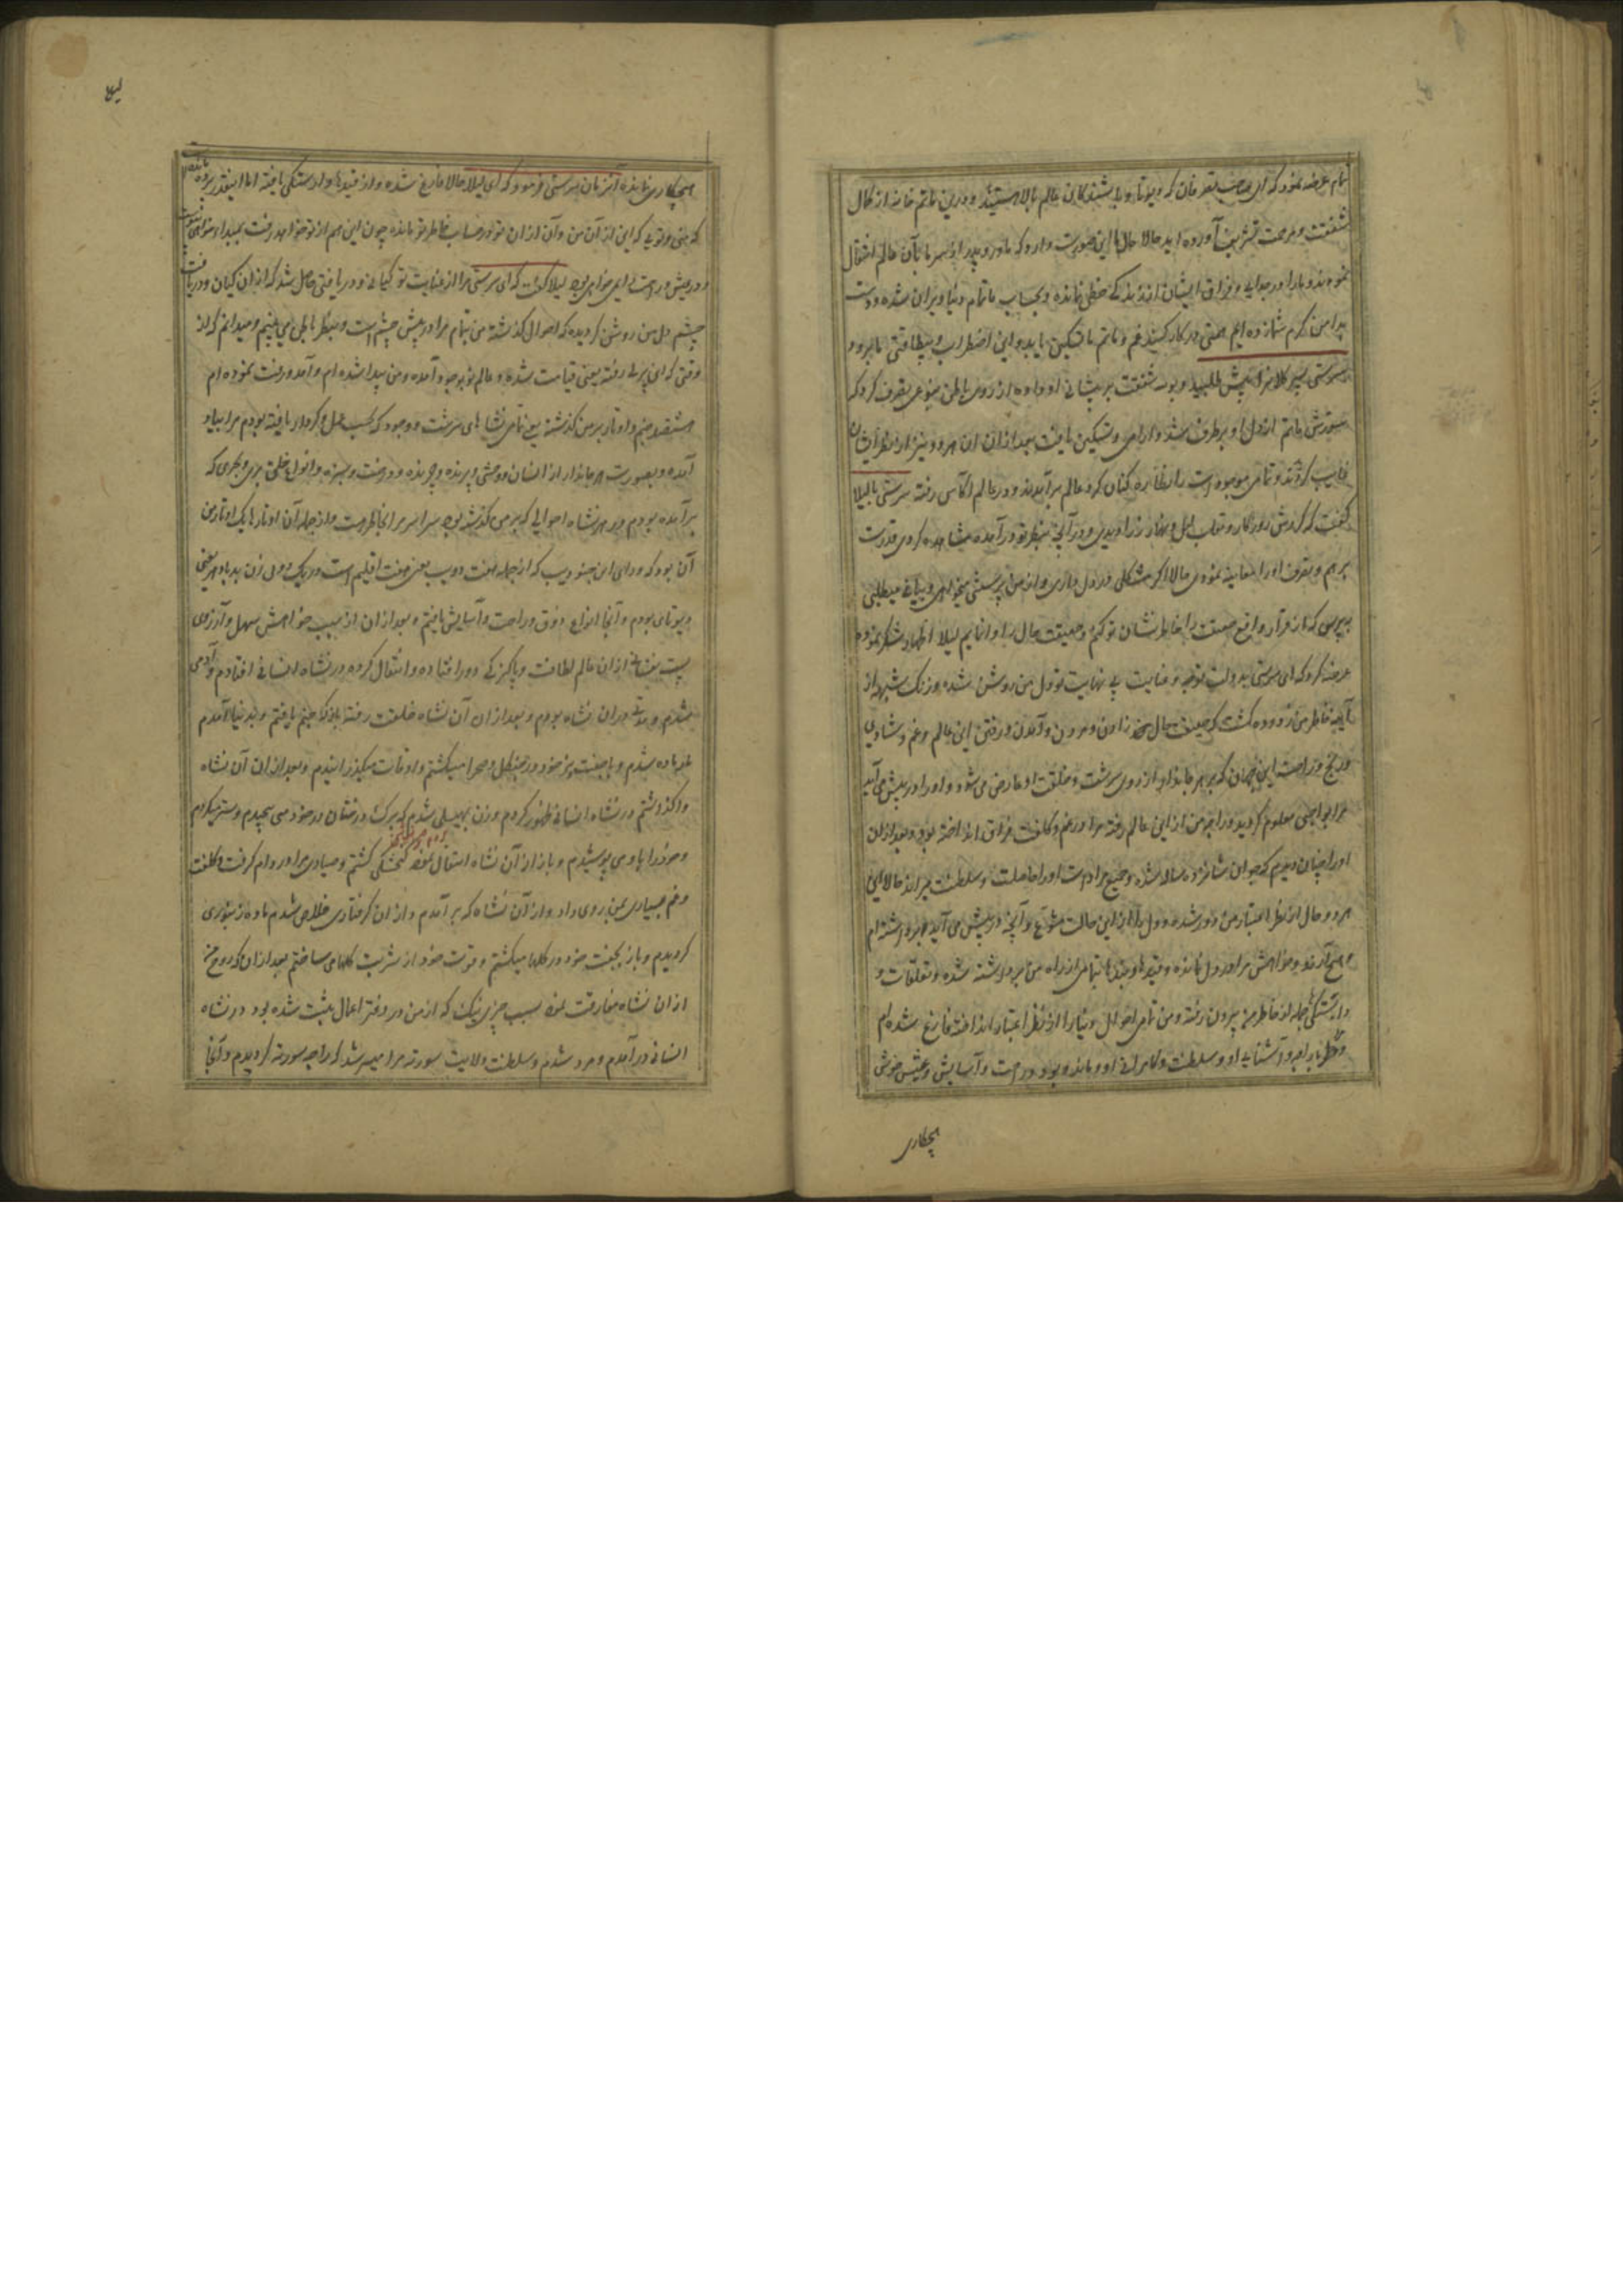 تمام عرضه نمود که ای صاحب تصرفان که دیوتا و باشندگان عالم بالا هستید و درین ماتم خانه از کمال
شفقت و مرحمت تشریف آورده اید حالا حال ما این صورت دارد که مادر و پدر از سر ما بآن عالم انتقال
نموده اند و ما را در جدایی و فراق ایشان از زندگی حظی نمانده و بحساب ما تمام دنیا ویران شده و دست
بدامن کرم شما زده ایم همتی در کار کنید غم و ماتم ما تسکین یابد و این اضطراب و بیطاقتی ما برود
سرستی پسر کلانرا پیش طلبید و بوسه شفقت بر پیشانی او داده از روی باطن بنوعی تصرف کرد که
شورش ماتم از دل او برطرف شد و آرامی و تسکین یافت بعد ازان آن هر دو نیز از نظر ایشان
غایب کردند و تمامی موجودات را نظاره کنان گرد عالم برآمدند و در عالم آکاس رفته سرستی با لیلا
گفت که گردش روزگار و تقلب لیل و نهار را دیدی و در آنچه بنظر تو درآمده مشاهده کردی قدرت
برهم و تصرف او را معاینه نمودی حالا اگر مشکلی در دل داری و از من پرسش میخواهی و بیانی میطلبی
بپرس که از قرار واقع حقیقت را خاطرنشان تو کنم و حقیقت حال را وانمایم لیلا اظهار شکر نموده
عرضه کرد که ای سرستی بدولت توجه و عنایت بی نهایت تو دل من روشن شده و زنگ شبهه از
آیینه خاطر من زدوده گشت که حقیقت حال زادن و مردن و آمدن و رفتن این عالم و غم و شادی
و رنج و راحت این جهان که بر هر جاندار از روی سرشت و خلقت او عارض می شود و او را در پیش می آید
مرا بواجبی معلوم گردید و راجه من از این عالم رفته مرا در غم و کلفت فراق انداخته بود و بعد ازان
او را چنان دیدم که جوان شانزده ساله شده و جمیع مرادات او را حاصلت و سلطنت میراند حالا این
هر دو حال از نظر اعتبار من دور شده و دل را از این حالت متنوع و آنچه در پیش می آید بهره داشته ام
و هیچ آرزو و خواهش مرا در دل نمانده و قیدها و بندها بتمامی از راه من برداشته شده و تعلقات و
وابستگی ها جمله از خاطر من بیرون رفته و من تمامی احوال دنیا را از نظر اعتبار انداخته فارغ شده ام
و بخاطر راجه و آشنایی او و سلطنت و کامرانی او و ماند و بود و راحت و آسایش و عیش خوش
هیچکاری
لیلا
هیچکاری نمانده آنزمان سرستی فرمود که ای لیلا حالا فارغ شده و از قیدها وارستگی یافته اما اینقدر پرده مانده است
که منی و تویی که این از آن من و آن از ان تو در حساب خاطر تو مانده چون این هم از تو خواهد رفت بمبدا خواهی پیوست
و در عیش و راحت دایمی خواهی بود لیلا گفت که ای سرستی مرا از عنایت تو گیانی و دریافتی حاصل شد که از ان گیان و دریافت
چشم دل من روشن گردیده که احوال گذشته من بتمام مرا در پیش چشم است و بنظر باطن می بینم و میدانم که از
وقتی که ای پرلی رفته یعنی قیامت شده و عالم بوجود آمده و من پیدا شده ام و آمد و رفت نموده ام
هشتصد جنم و اوتار بر من گذشته یعنی تمامی نشاهای سرشت و وجود که بحسب عمل و کردار یافته بودم مرا بیاد
آمده و بصورت هر جاندار از انسان و وحشی و پرنده و چرنده و درخت و سبزه و انواع خلق بری و بحری که
برآمده بودم و در هر نشاه احوالی که بر من گذشته بود سراسر مرا بخاطر هست و از جمله آن اوتارها یک اوتار من
آن بود که ورای این جنبو دیپ که از جمله هفت دیپ یعنی هفت اقلیم است در یک دیپ زن بدیادهر یعنی
دیوتای بودم و آنجا انواع ذوق و راحت و آسایش یافتم و بعد ازان از سبب خواهش سهل و آرزوی
پست نفسانی از ان عالم لطافت و پاکیزگی دور افتاده و انتقال کرده در نشاه انسانی افتادم و آدمی
شدم و مدتها در ان نشاه بودم و بعد از ان آن نشاه خلقت رفته باز جنم یافتم و بدنیا آمدم
ماده شدم و با جفت خود در جنگل و صحرا میگشتم و اوقات میگذرانیدم و بعد ازان آن نشاه
واگذاشتم در نشاه انسانی ظهور کردم و زن بهیلی شدم که برگ درختان در خود می پیچیدم و ستر میکردم
و خود را باو می پوشیدم و باز از آن نشاه انتقال نموده کنجشکی گشتم و صیادی مرا در دام گرفت و کلفت
و غم بسیاری بمن روی داد و از آن نشاه که برآمدم و از ان گرفتاری خلاص شدم ماده زنبوری
گردیدم و باز بجفت خود در گلها میگشتم و قوت خود از شربت گلها می ساختم بعد ازان که روح من
از ان نشاه مفارقت نمود بسبب چیزی نیک که از من در دفتر اعمال ثبت شده بود در نشاه
انسانی درآمدم و مرد شدم و سلطنت ولایت سورته مرا میسر شد که راجه سورته گردیدم و آنجا